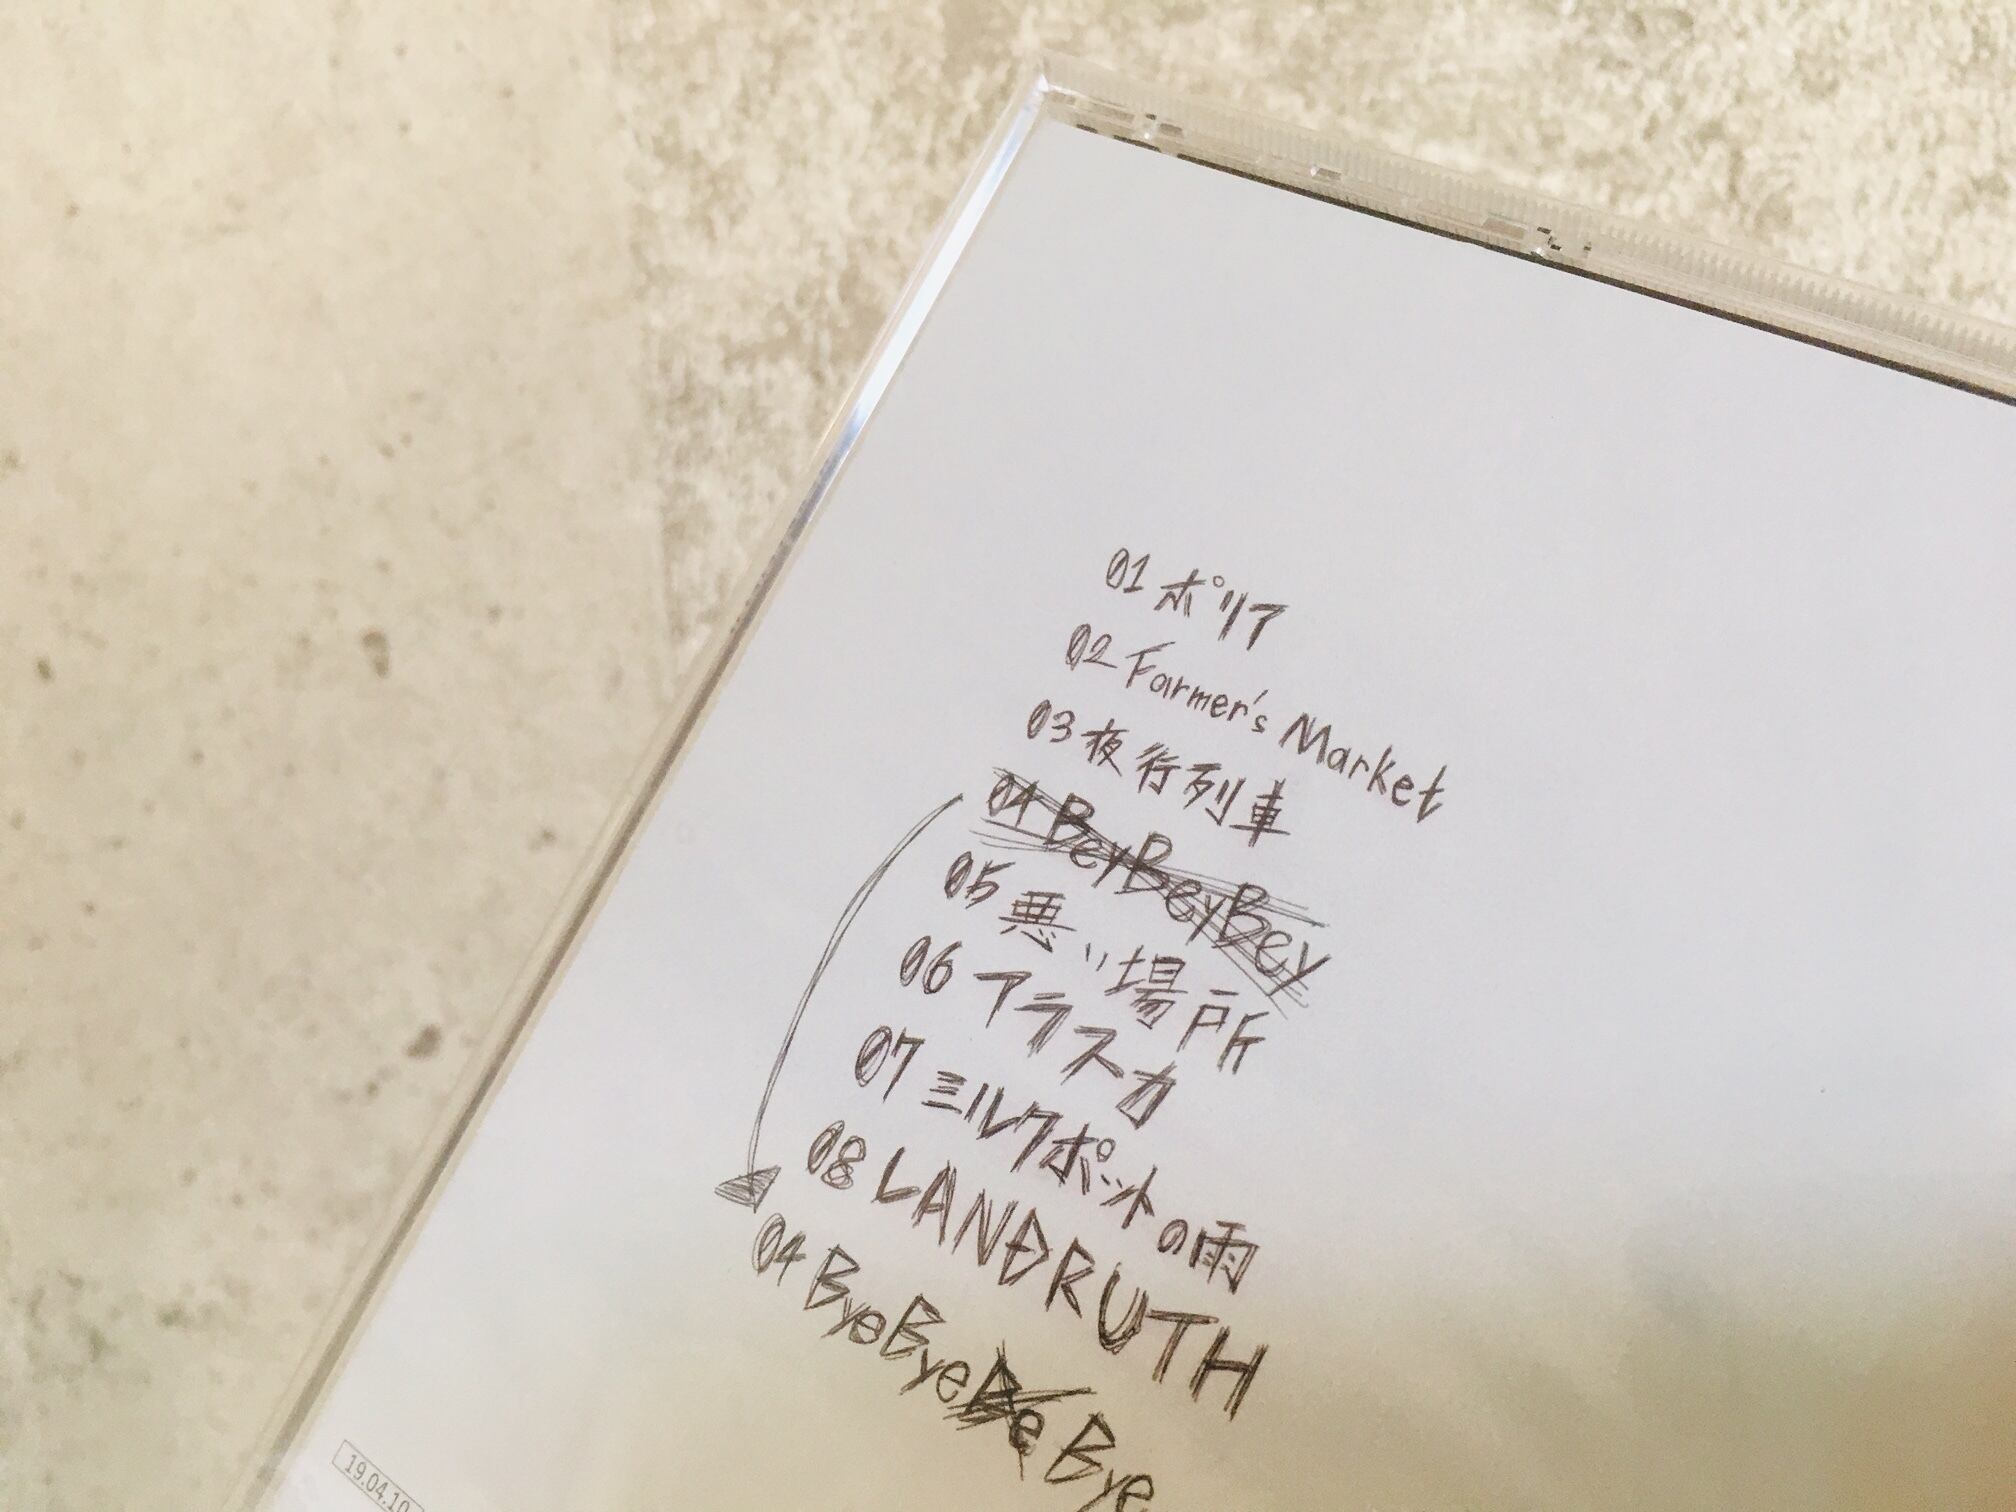 01 ポリア
02 Farmer's Market
03 夜行列車
04 BeyBeyBey
05 悪い場所
06 アラスカ
07 ミルクポットの雨
08 LANDRUTH
04 ByeByeBe Bye
19.04.10